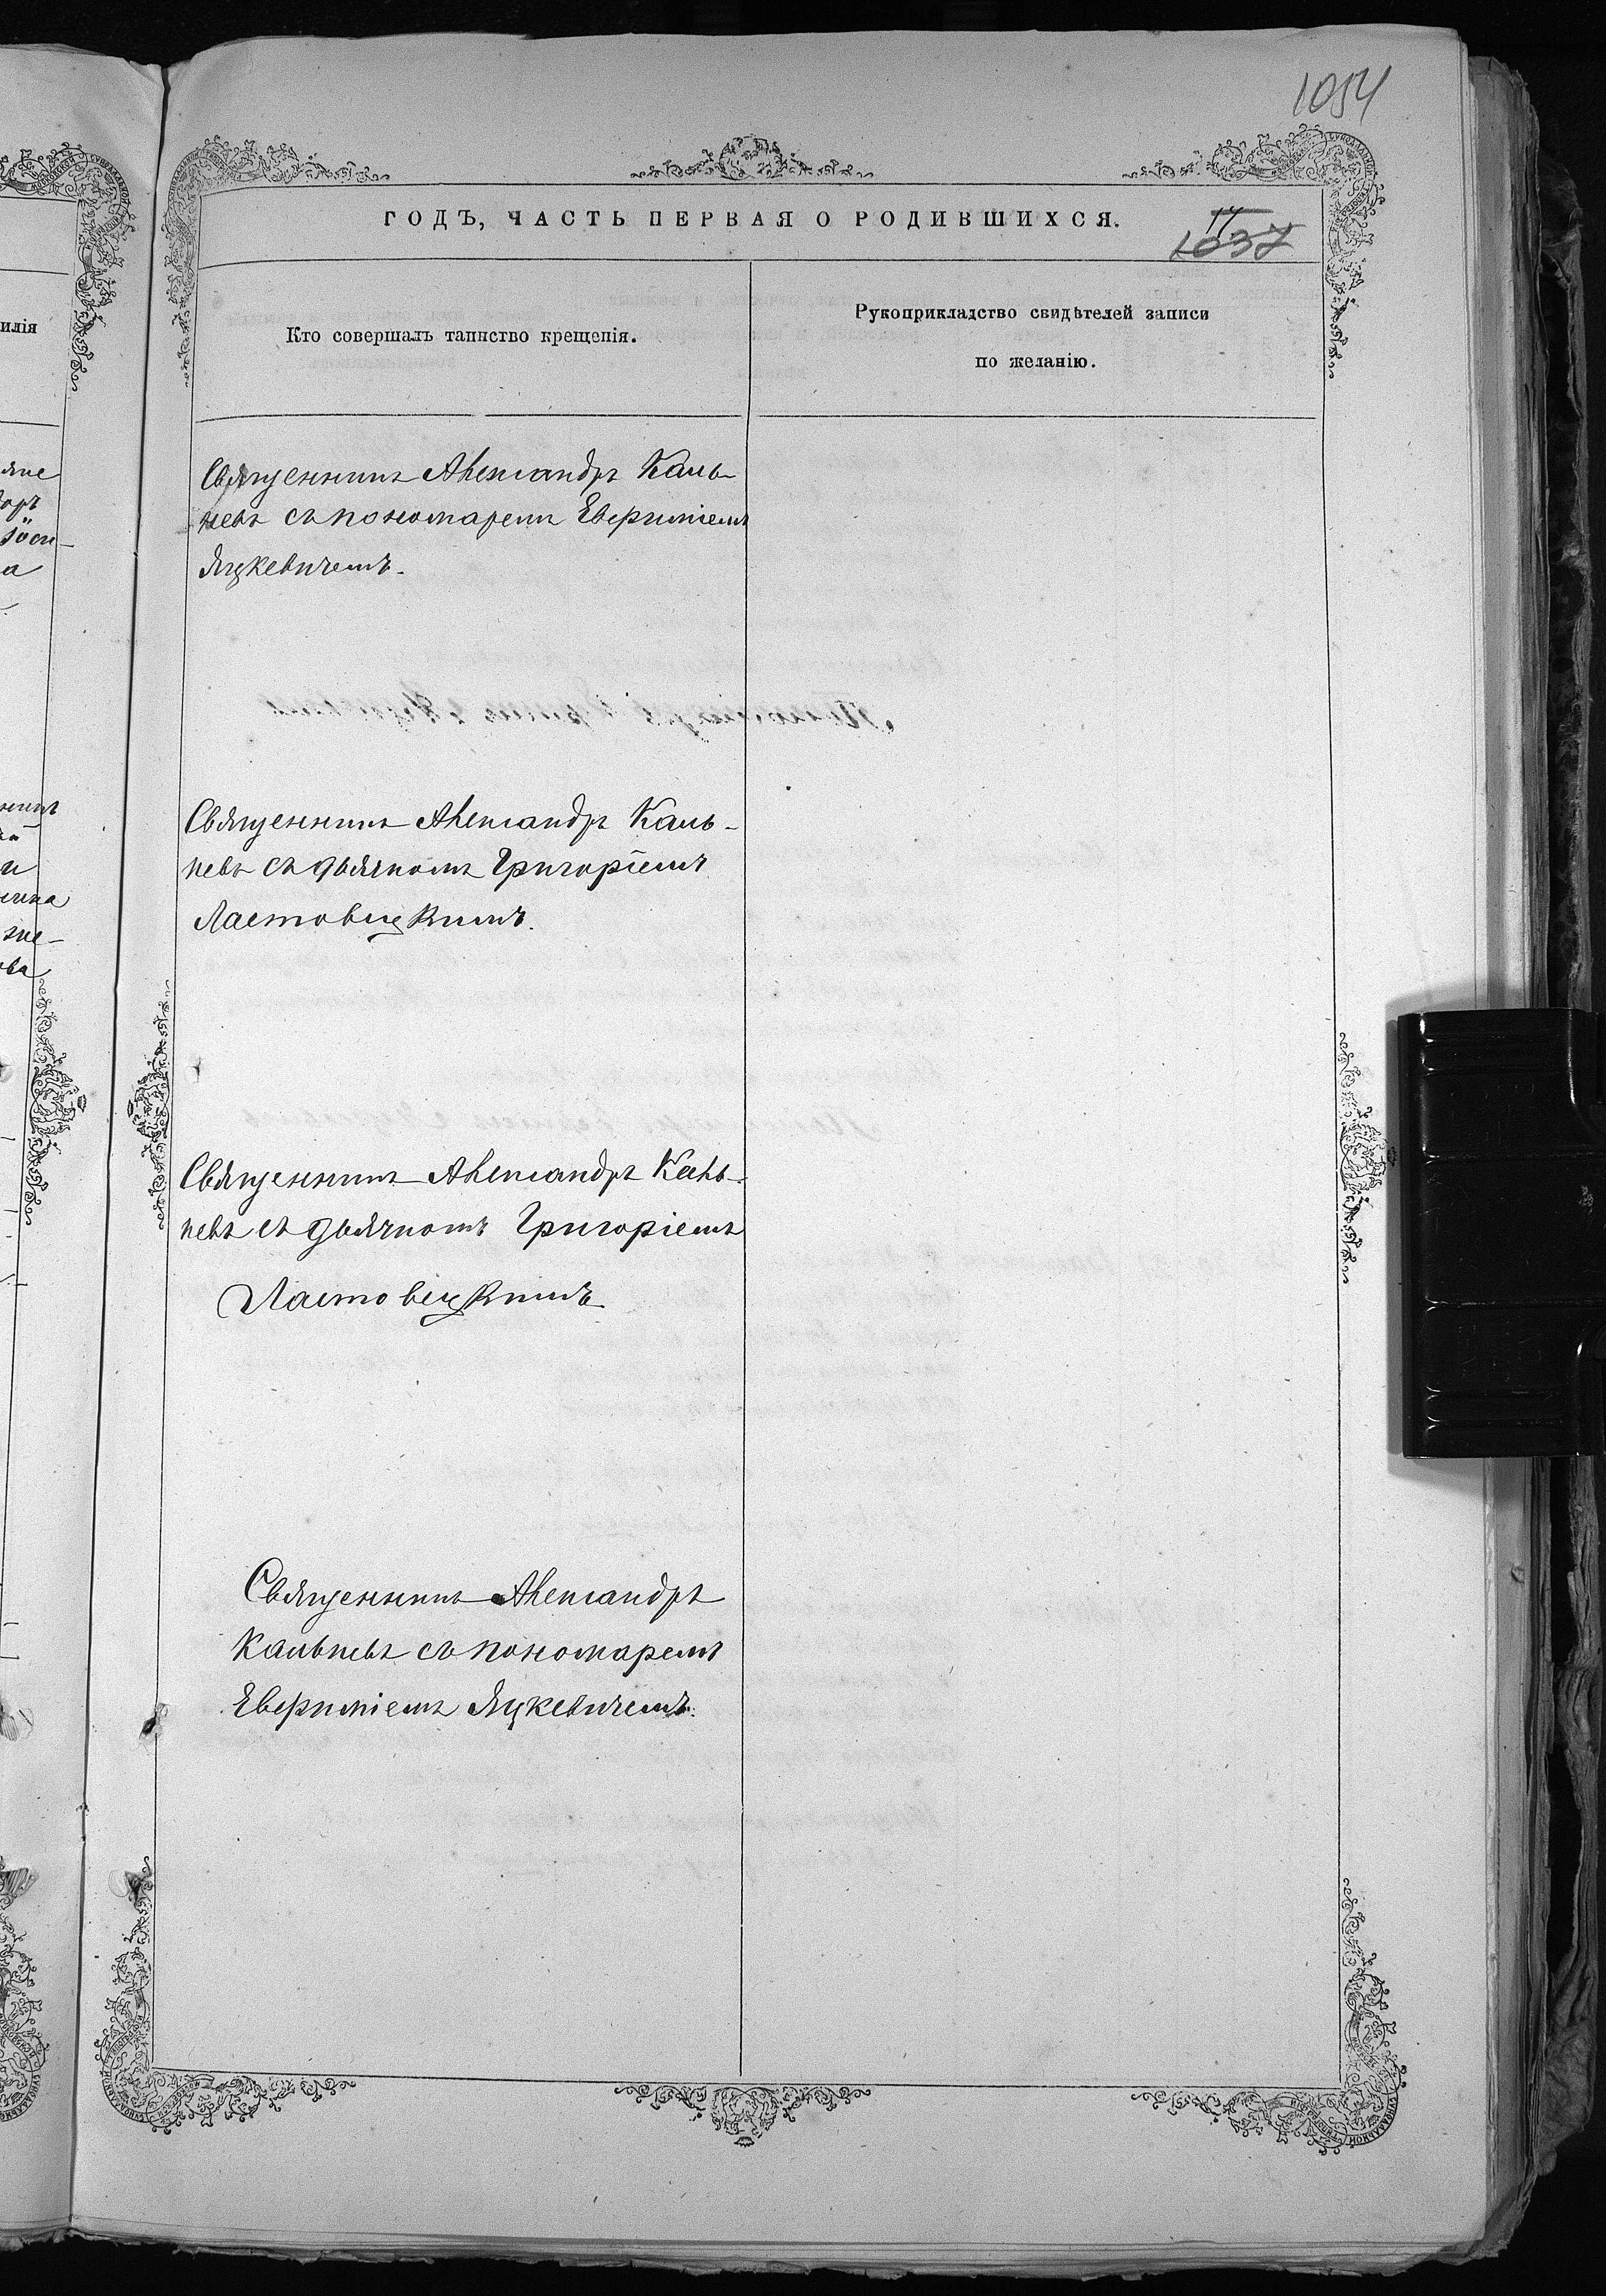 1054
ГОДЪ, ЧАСТЬ ПЕРВАЯ О РОДИВШИХСЯ.
1037
илія
Кто совершалъ таинство крещенія.
Рукоприкладство свидѣтелей записи
по желанію.
Священникъ Александръ Каль-
невъ съ пономаремъ Евфиміемъ
Яцкевичемъ.
Священникъ Александръ Каль-
невъ съ дьячкомъ Григоріемъ
Ластовецкимъ.
Священникъ Александръ Каль-
невъ съ дьячкомъ Григоріемъ
Ластовецкимъ
Священникъ Александръ
Кальневъ съ пономаремъ
Евфиміемъ Яцкевичемъ.